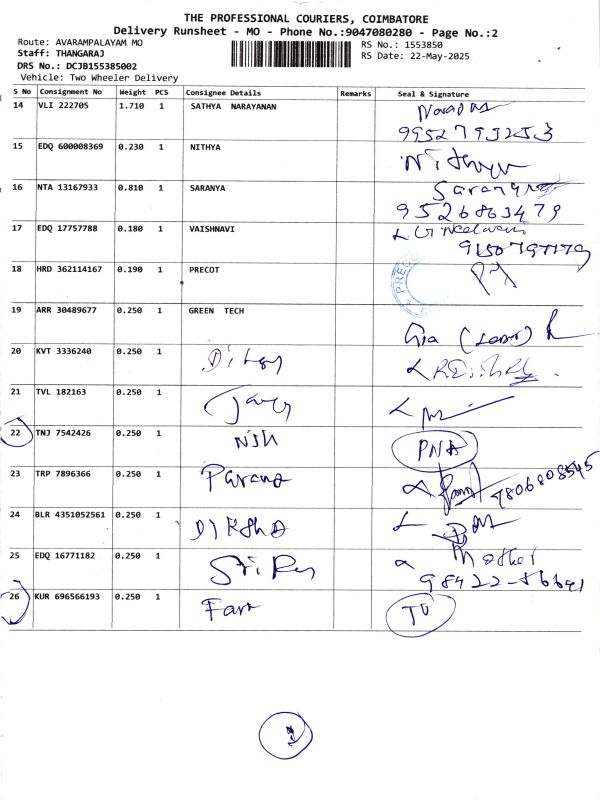 THE PROFESSIONAL COURIERS, COIMBATORE
Delivery Runsheet - MO - Phone No.:9047080280 - Page No.:2
Route: AVARAMPALAYAM MO RS No.: 1553850
Staff: THANGARAJ RS Date: 22-May-2025
DRS No.: DCJB155385002
Vehicle: Two Wheeler Delivery
S No Consignment No Weight PCS Consignee Details Remarks Seal & Signature
14 VLI 222705 1.710 1 SATHYA NARAYANAN
9952793253
15 EDQ 600008369 0.230 1 NITHYA Nithya
16 NTA 13167933 0.810 1 SARANYA Saranya
9526863479
17 EDQ 17757788 0.180 1 VAISHNAVI
9150797179
18 HRD 362114167 0.190 1 PRECOT PRECO
19 ARR 30489677 0.250 1 GREEN TECH
20 KVT 3336240 0.250 1
21 TVL 182163 0.250 1
22 TNJ 7542426 0.250 1 PNA
23 TRP 7896366 0.250 1 9806808545
24 BLR 4351052561 0.250 1
25 EDQ 16771182 0.250 1 Mother
98422-86691
26 KUR 696566193 0.250 1